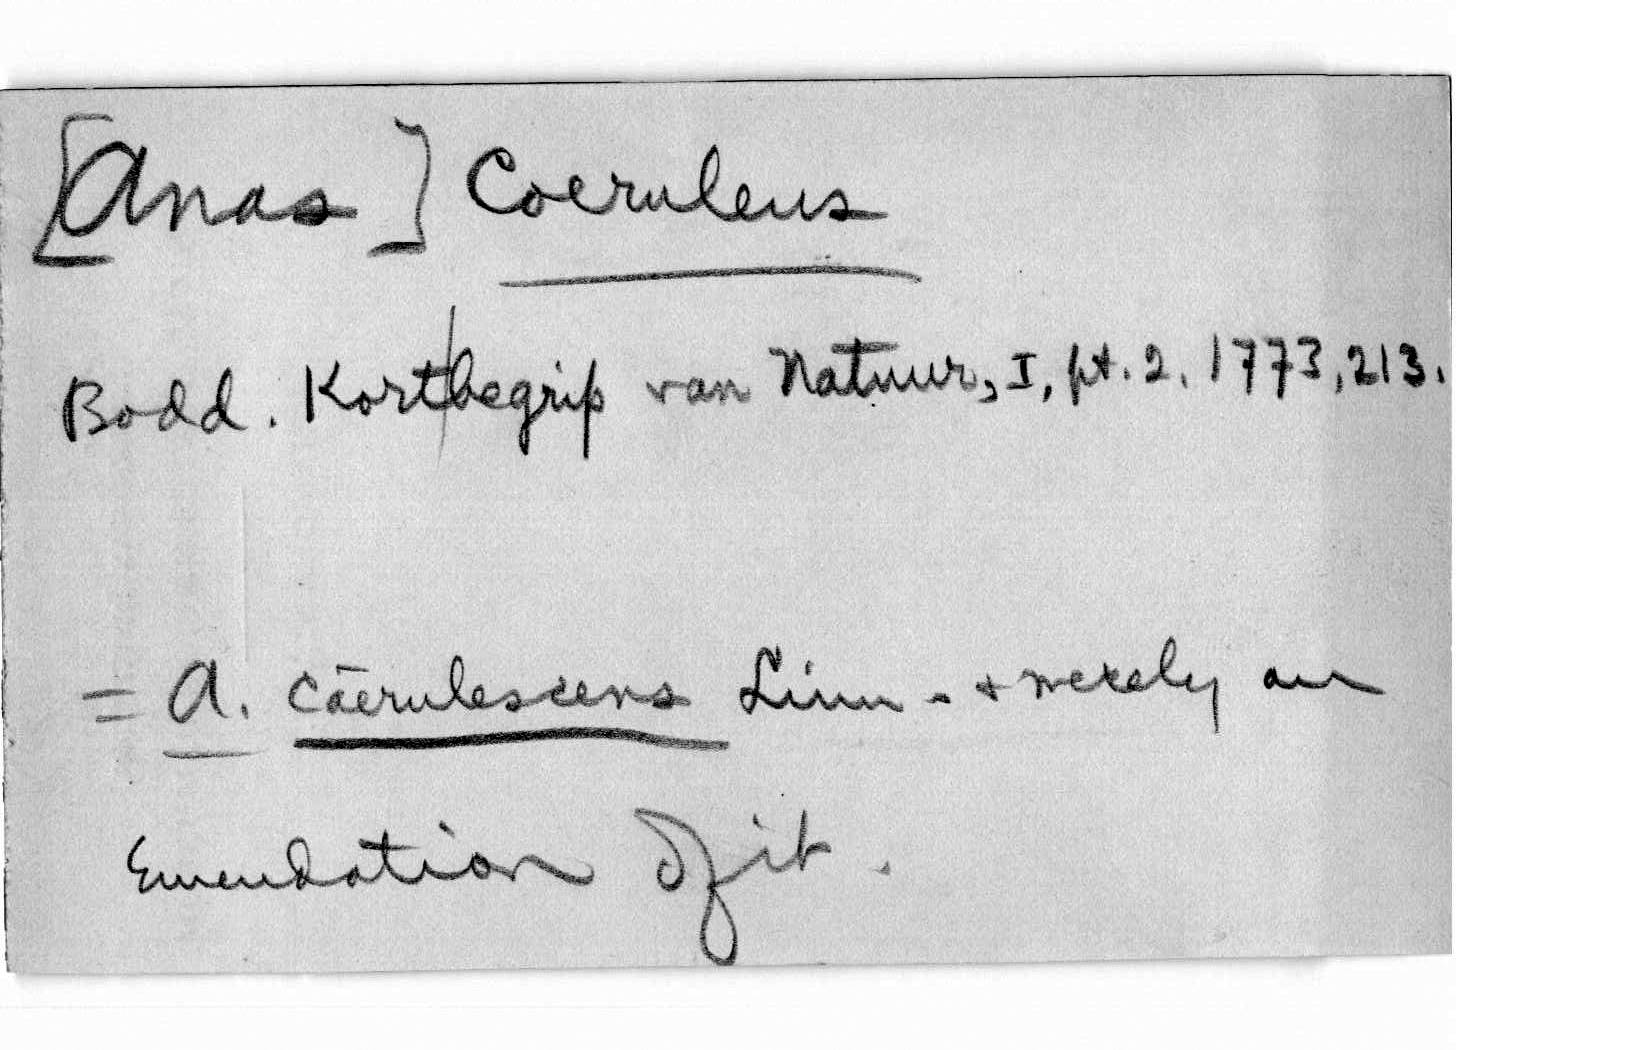 [Anas] Coeruleus
Bodd. Kort|begrip van Natuur, I, pt. 2, 1773, 213.
= A. cāerulescens Linn - & merely an
Emendation of it.